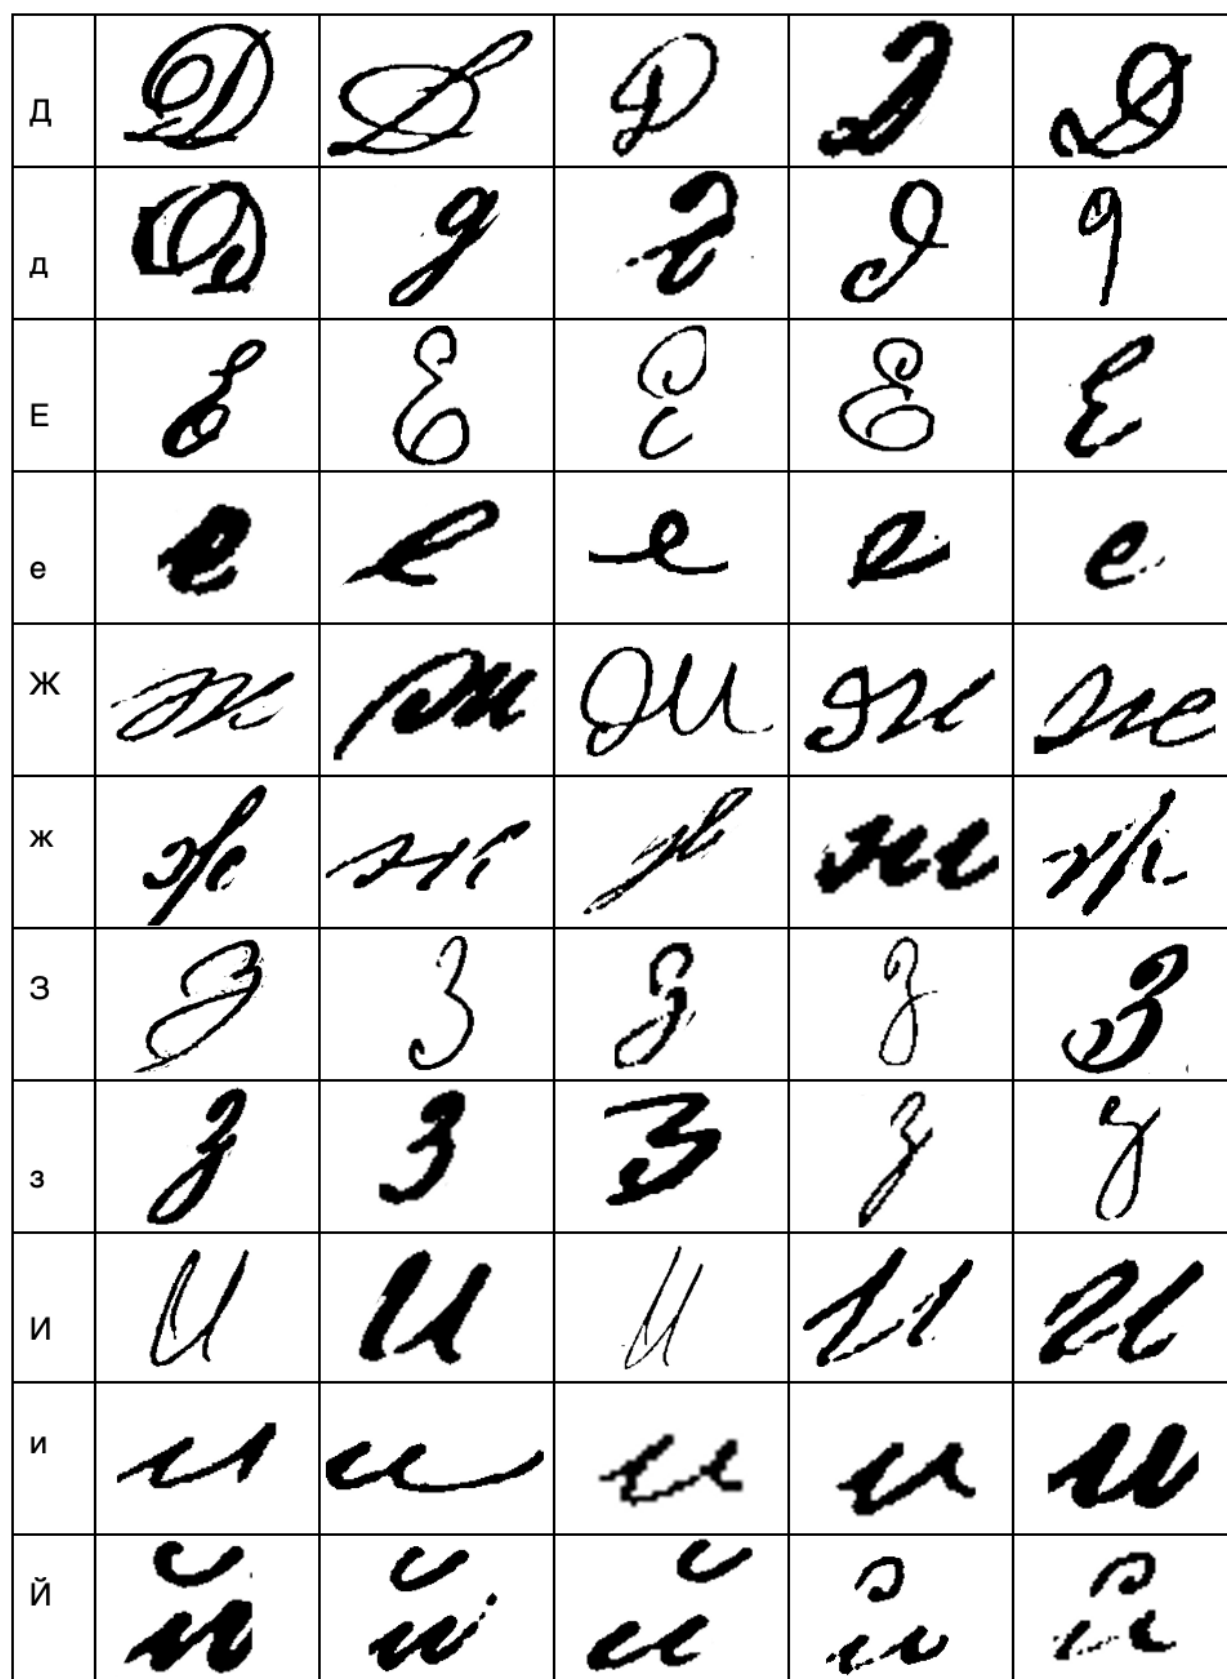 Д Д Д Д Д Д
д д д д д д
Е Е Е Е Е Е
е е е е е е
Ж Ж Ж Ж Ж Ж
ж ж ж ж ж ж
З З З З З З
з з з з з з
И И И И И И
и и и и и и
Й й й й й й